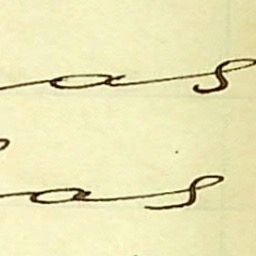 as
as